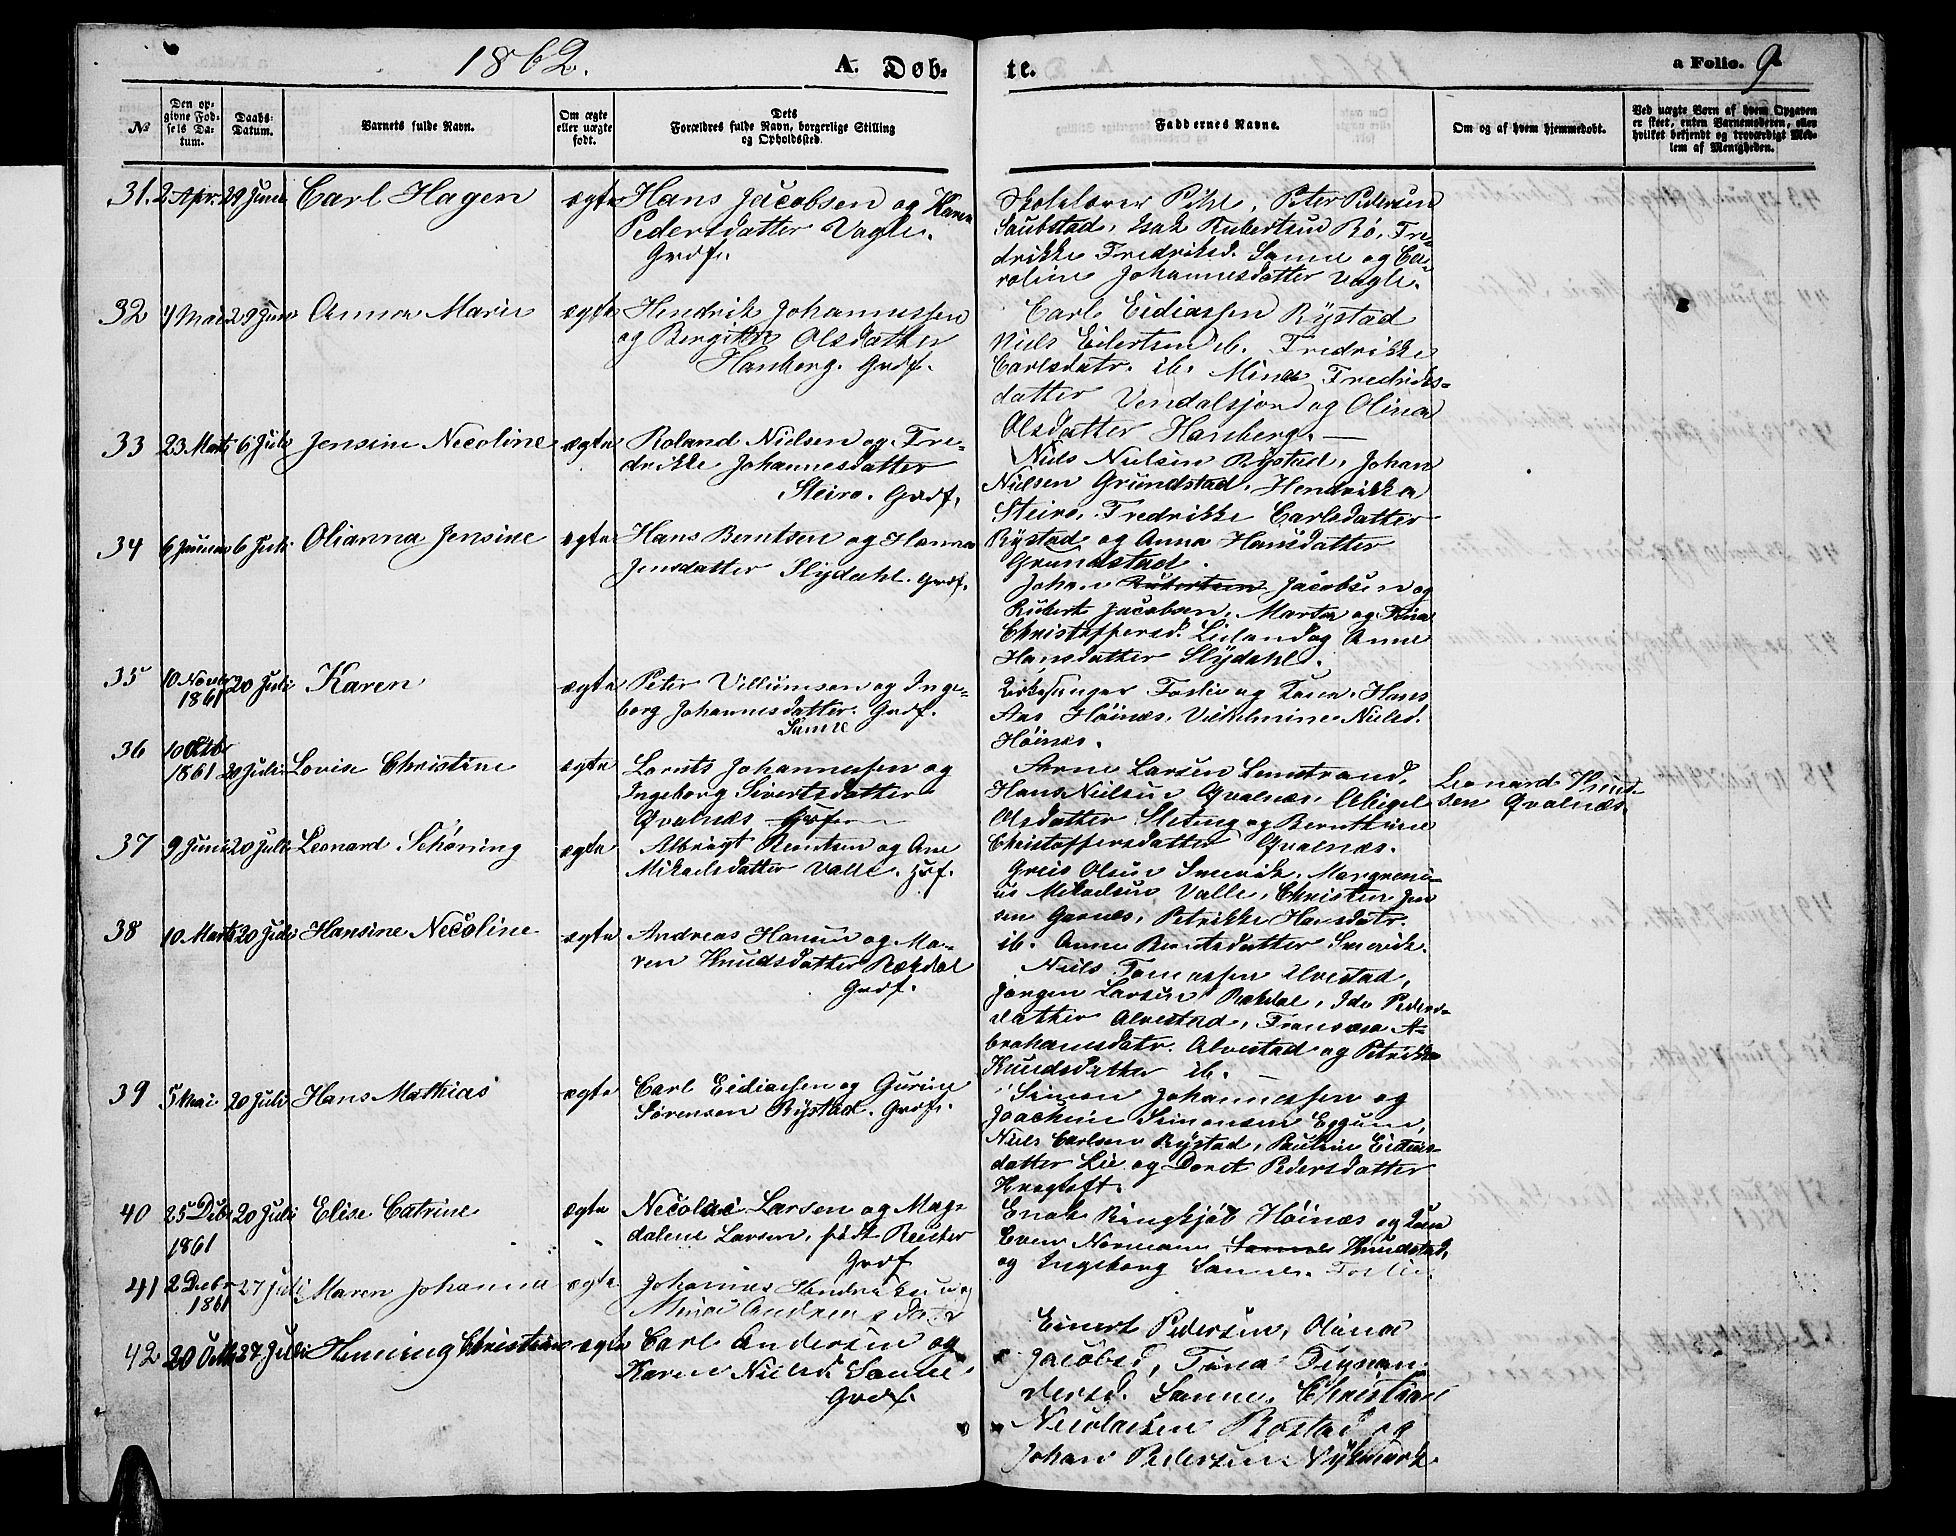 1862. A. Døb-
te. a Folio. 9
№
Den op-
givne Fød-
sels Da-
tum.
Daabs-
Datum.
Barnets fulde Navn.
Om ægte
eller uægte
født.
Dets
Forældres fulde Navn, borgerlige Stilling
og Opholdssted.
Faddernes Navne.
Om og af hvem hjemmedøbt.
Ved uægte Børn af hvem Opgaven
er skeet, enten Barnemoderen, eller
hvilket bekjendt og troværdigt Med-
lem af Menigheden.
31. 2 Apr. 29 Juni Carl Hagen ægte Hans Jacobsen og Karen
Pedersdatter Vagle.
Grdf.
Skolelærer Pihl, Peter Pedersen
Isak Rubertsen Bø, Fre-
drikke Fredriksd. Sanne og Ca-
roline Johannesdatter Vagle.
32 4 Mai 29 Juni Anna Marie ægte Hendrik Johannessen
og Bergitte Olsdatter
Hanberg. Grdf.
Carl Eidiassen Rystad
Niels Eilertsen ib. Fredrikke
Carlsdatr. ib. Mina Fredriks-
datter Vendalsjord og Olina
Olsdatter Hanberg.
33 23 Marts 6 Juli Jensine Necoline ægte Roland Nielsen og Fre-
drikke Johannesdatter
Steiro. Grdf.
Niels Nielsen Rystad, Johan
Nielsen Grundstad, Hendrikka
Steiro, Fredrikke Carlsdatter
Rystad og Anna Hansdatter
Grundstad.
34 6 Januar 6 Juli Olianna Jensine ægte Hans Berntsen og Hanna
Jensdatter Slydahl. Grdf.
Johan Rubertsen Jacobsen og
Rubert Jacobsen, Marta og
Christoffersd. Lieland og Anne
Hansdatter Slydahl.
35 10 Novbr 1861 20 Juli Karen ægte Peter Villumsen og Inge-
borg Johannesdatter. Grdf.
Sanne
Kirkesanger Foslie og Kone, Hans
Aas Höinæs, Vilhelmine Nielsd.
Höines.
36 10 Oktbr 1861 20 Juli Lovise Christine ægte Lornts Johannessen og
Ingeborg Sivertsdatter
Qvalnæs Grdf.
Arne Larsen Lenstrand,
Hans Nielsen Qvalnæs, Abigel
Olsdatter Sletteng og Bernthine
Christoffersdatter Qvalnæs.
Leonard Knud-
sen Qvalnæs.
37 9 Juni 20 Juli Leonard Schøning ægte Albrigt Berntsen og Ane
Mikaelsdatter Valle. Hsf.
Greis Olsen Smevik, Mangrenu-
us Mikaelsen Valle, Christen Jen
sen Garnes, Petrikke Hansdatr.
ib. Anne Berntsdatter Smevik.
38 10 Marts 20 Juli Hansine Necoline ægte Andreas Hansen og Ma-
ren Knudsdatter Rækdal
Grdf.
Niels Tomassen Alvestad,
Jørgen Larsen Rækdal, Ida Peders-
datter Alvestad, Fransesa A-
brahamsdatr. Alvestad og Petrikke
Knudsdatter ib.
39 5 Mai 20 Juli Hans Mathias ægte Carl Eidiassen og Gurine
Sørensen Rystad. Grdf.
Simon Johannessen og
Joachim Simonsen Eggum,
Niels Carlsen Rystad, Pauline Eidias-
datter Lie og Doret Pedersdatter
Kragtoft.
40 25 Debr 1861 20 Juli Elise Catrine ægte Necolai Larsen og Mag-
dalene Larsen, født Reuter
Grdf
Enok Ringkjøb Höinæs og Kone
Even Normann Sanne Knudstad,
og Ingeborg Sanne. Foslie.
41 2 Debr 1861 27 Juli Maren Johanna ægte Johannes Hendriksen og
Mina Andreasdatter
42 20 Oktb 27 Juli Henning Christian ægte Carl Andersen og
Karen Nielsd. Sanne
Grdf.
Einert Pedersen, Olina
Jacobsd, Trina
dersd. Sanne, Christian
Necolaisen Rostad og
Johan Pedersen Nykmark.